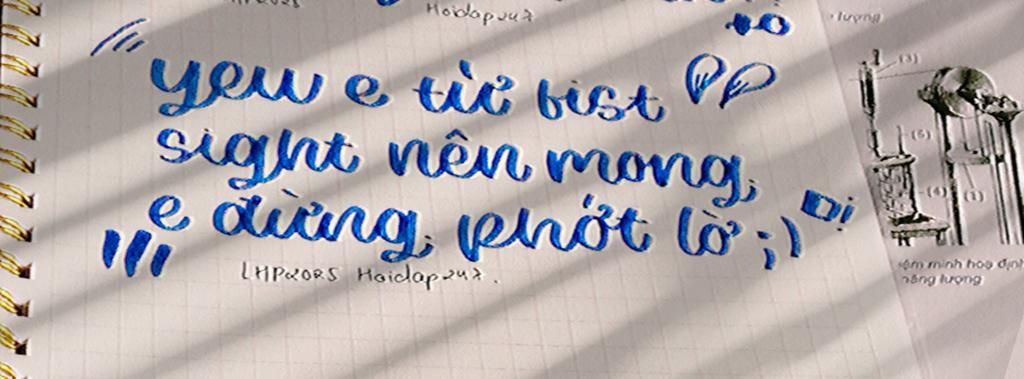 Hoidap247
yew e từ fist
sight nên mong
e đừng phớt lờ ;)
LHP2025 Hoidap247.
lượng
(3)
(5)
(4)
iệm minh hoạ định
năng lượng